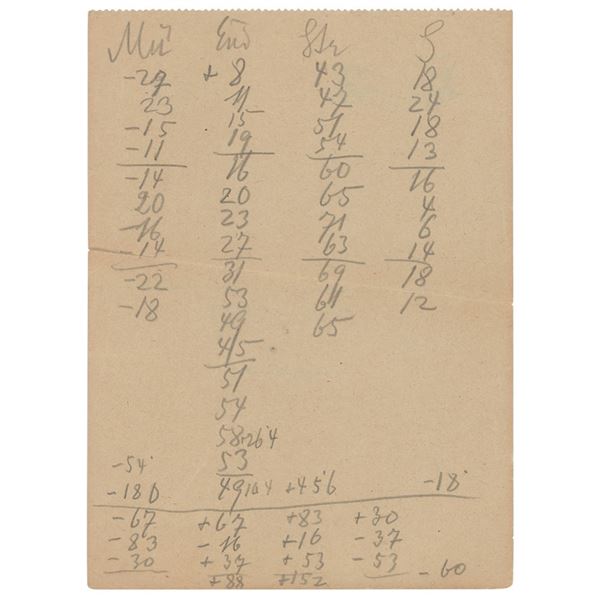 Mü Eud Str S
-29 +8 43 18
23 11 47 24
-15 15 51 18
-11 19 54 13
-14 16 60 16
20 20 65 4
-16 23 71 6
-14 27 63 14
-22 31 69 18
-18 53 64 12
49 65
45
51
54
58 264
-54 53
-186 49 104 +456 -18
-67 +67 +83 +30
-83 -16 +16 -37
-30 +37 +53 -53 -60
+88 +152